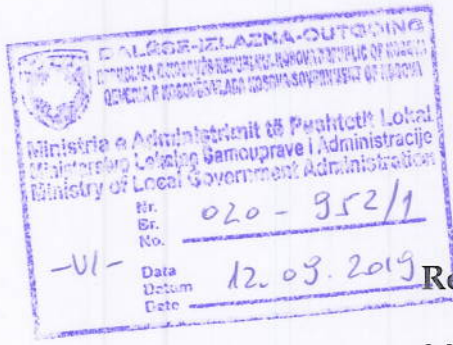 DALËSE-IZLAZNA-OUTGOING
REPUBLIKA E KOSOVËS-REPUBLIKA KOSOVA-REPUBLIC OF KOSOVA
QEVERIA E KOSOVËS-VLADA KOSOVA-GOVERNMENT OF KOSOVA
Ministria e Administrimit të Pushtetit Lokal
Ministarstvo Lokalne Samouprave i Administracije
Ministry of Local Government Administration
Nr.
Br.
No. 020-952/1
-VI-
Data
Datum
Date 12.09.2019
Re